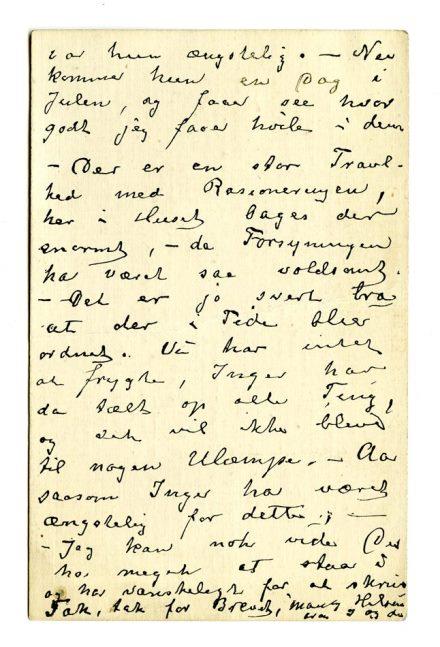 var hun ængstelig. – Nu
komme hun en Dag i
Julen, og faaer see hvor
godt jeg faaer hvile i dem
– Der er en stor Travl-
hed med Rasioneringen,
her i Huset bages der
enormt, – da Forsyningen
ha været saa voldsomt.
– Det er jo svert bra
at der i Tide blir
ordnet. Vi har intet
at frygte, Inger har
da talt op alle Ting,
og det vil ikke blive
til nogen Ulæmpe. –
saasom Inger ha været
ængstelig for dette; –
– Jeg kan nok vide De
ha meget at staa i
og har vanskeligt for at skrive
Tak, tak for Brevet, mange Hilsen